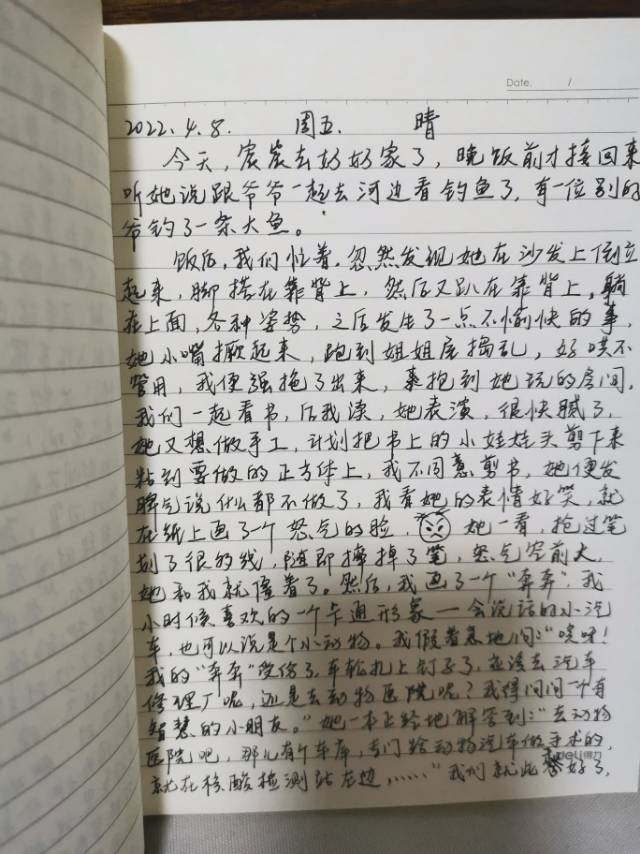 Date. /
2022.4.8. 周五. 晴
今天,宸宸去奶奶家了,晚饭前才接回来
听她说跟爷爷一起去河边看钓鱼了,有一位别的
爷钓了一条大鱼。
饭后,我们忙着,忽然发现她在沙发上倒立
起来,脚搭在靠背上,然后又趴在靠背上,躺
在上面,各种姿势,之后发生了一点不愉快的事,
她小嘴撅起来,跑到姐姐屋捣乱,好哄不
管用,我便强拖了出来,抱到她玩的房间,
我们一起看书,后我读,她表演,很快腻了,
她又想做手工,计划把书上的小娃娃头剪下来
粘到要做的正方体上,我不同意剪书,她便发
脾气说什么都不做了,我看她的表情好笑,就
在纸上画了个怒气的脸,她一看,抢过笔
划了很多线,随即摔掉了笔,怒气空前大,
她和我就僵着了。然后,我画了一个“奔奔”,我
小时候喜欢的一个卡通形象—会说话的小汽
车,也可以说是个小动物。我假着急地问:“哎呀!
我的“奔奔”受伤了,车轮扎上钉子了,应该去汽车
修理厂呢,还是去动物医院呢?我得问问一个有
智慧的小朋友。”她一本正经地解答到:“去动物
医院吧,那儿有个车库,专门给动物汽车做手术的,
就在核酸检测站左边,……”我们就此和好了,
deli得力